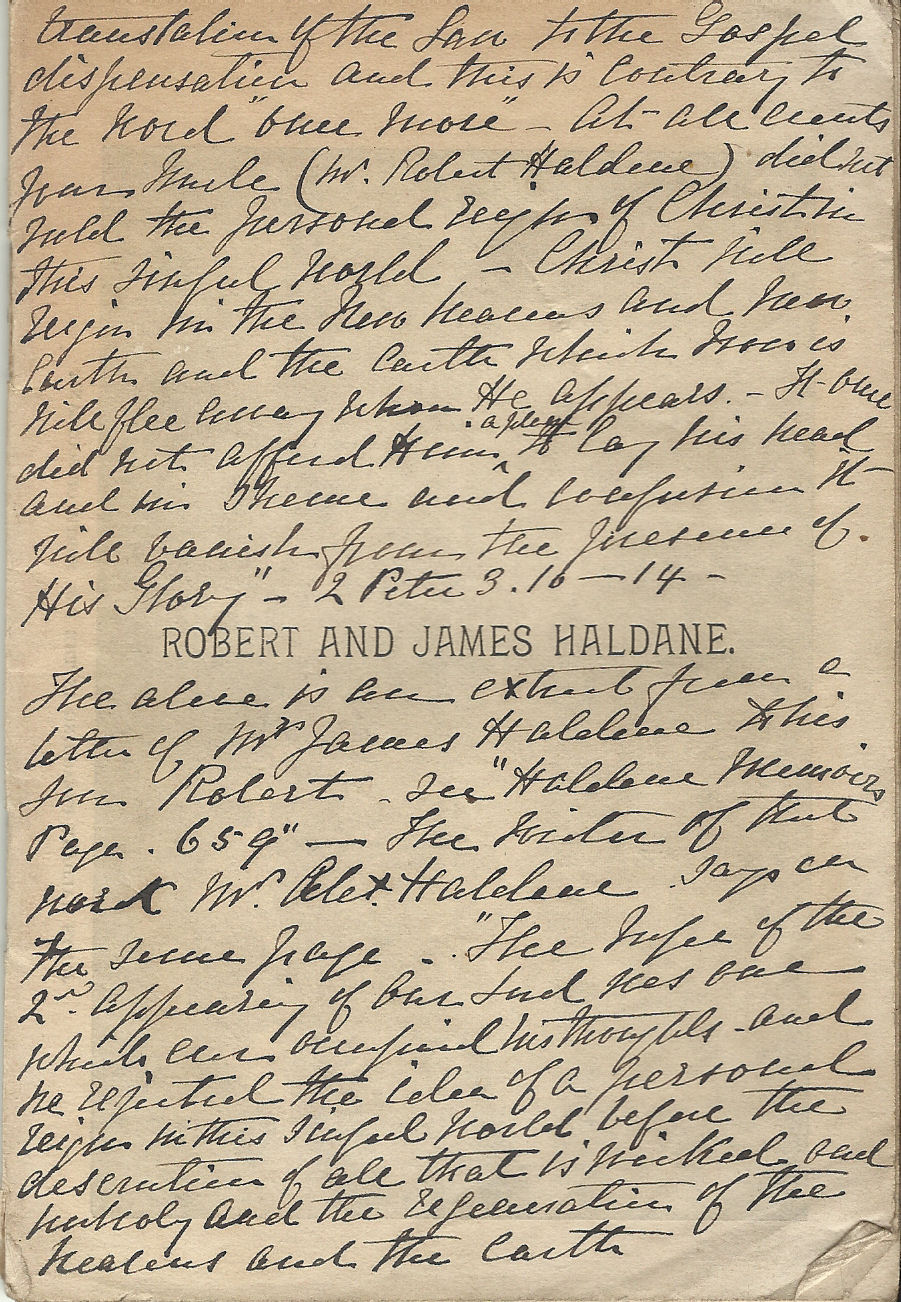 translation of the Law to the Gospel
dispensation and this is contrary to
the word "once more" - At all events
your Uncle (Mr. Robert Haldane) did not
hold the personal reign of Christ in
this sinful world - Christ will
reign in the New heavens and new
Earth and the Earth which now is
will flee away when He appears. - It once
did not afford Him a place to lay his head
and in shame and confusion it
will vanish from the presence of
His Glory" - 2 Peter 3. 10 - 14 -
ROBERT AND JAMES HALDANE.
The above is an extract from a
letter of Mr James Haldane to his
son Robert - see "Haldane Memoirs
Page. 659" - The writer of that
work Mr. Alex. Haldane says on
the same page - "The hope of the
2nd. appearing of our Lord was one
which ever occupied his thoughts - and
he rejected the idea of a personal
reign in this sinful world before the
of all that is wicked and
unholy and the regeneration of the
heavens and the Earth